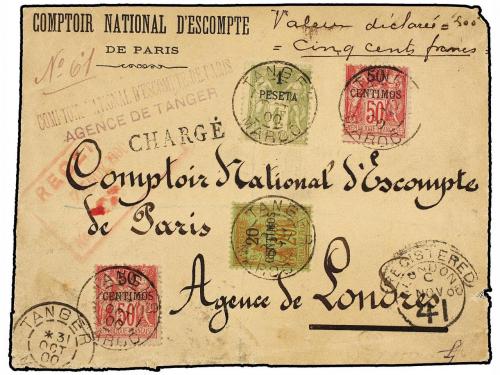 COMPTOIR NATIONAL D'ESCOMPTE
DE PARIS
Valeur déclarée = 500
= Cinq cents francs =
No 61
COMPTOIR NATIONAL D'ESCOMPTE DE PARIS
AGENCE DE TANGER
CHARGÉ
TANGER
MAROC
1
PESETA
TANGER
MAROC
50
CENTIMOS
50
Comptoir National d'Escompte
de Paris
Agence de Londres
TANGER
MAROC
20
CENTIMOS
REGISTERED
LONDON
NOV
41
50
CENTIMOS
50
TANGER
* 31
OCT
00